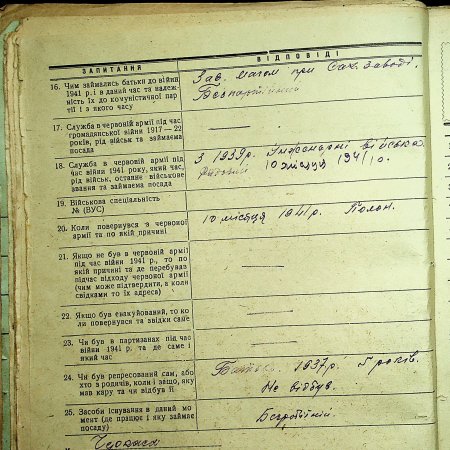 ЗАПИТАННЯ
ВІДПОВІДІ
16. Чим займались батьки до війни
1941 р. і в даний час та належ-
ність їх до комуністичної пар-
тії і з якого часу
Зав. магом при Сах. заводі.
Безпартійний
17. Служба в червоній армії під час
громадянської війни 1917—22
років, рід військ та займаєма
посада
18. Служба в червоній армії під
час війни 1941 року, який час,
рід військ, останнє військове
звання та займаєма посада
З 1939 р. Інженерні війська
Рядовий 10 місяця 1941 р.
19. Військова спеціальність
№ (ВУС)
20. Коли повернувся з червоної
армії та по якій причині
10 місяця 1941 р. Полон.
21. Якщо не був в червоній армії
під час війни 1941 р., то по
якій причині та де перебував
підчас відходу червоної армії
(чим може підтвердити, а коли
свідками то їх адреса)
22. Якщо був евакуйований, то ко-
ли повернувся та звідки саме
23. Чи був в партизанах під час
війни 1941 р. та де саме і
який час
24. Чи був репресований сам, або
хто з родичів, коли і защо, яку
мав кару та чи відбув її
1937 р. 5 років.
Не відбув.
25. Засоби існування в даний мо-
мент (де працює і яку займає
посаду)
Безробітній.